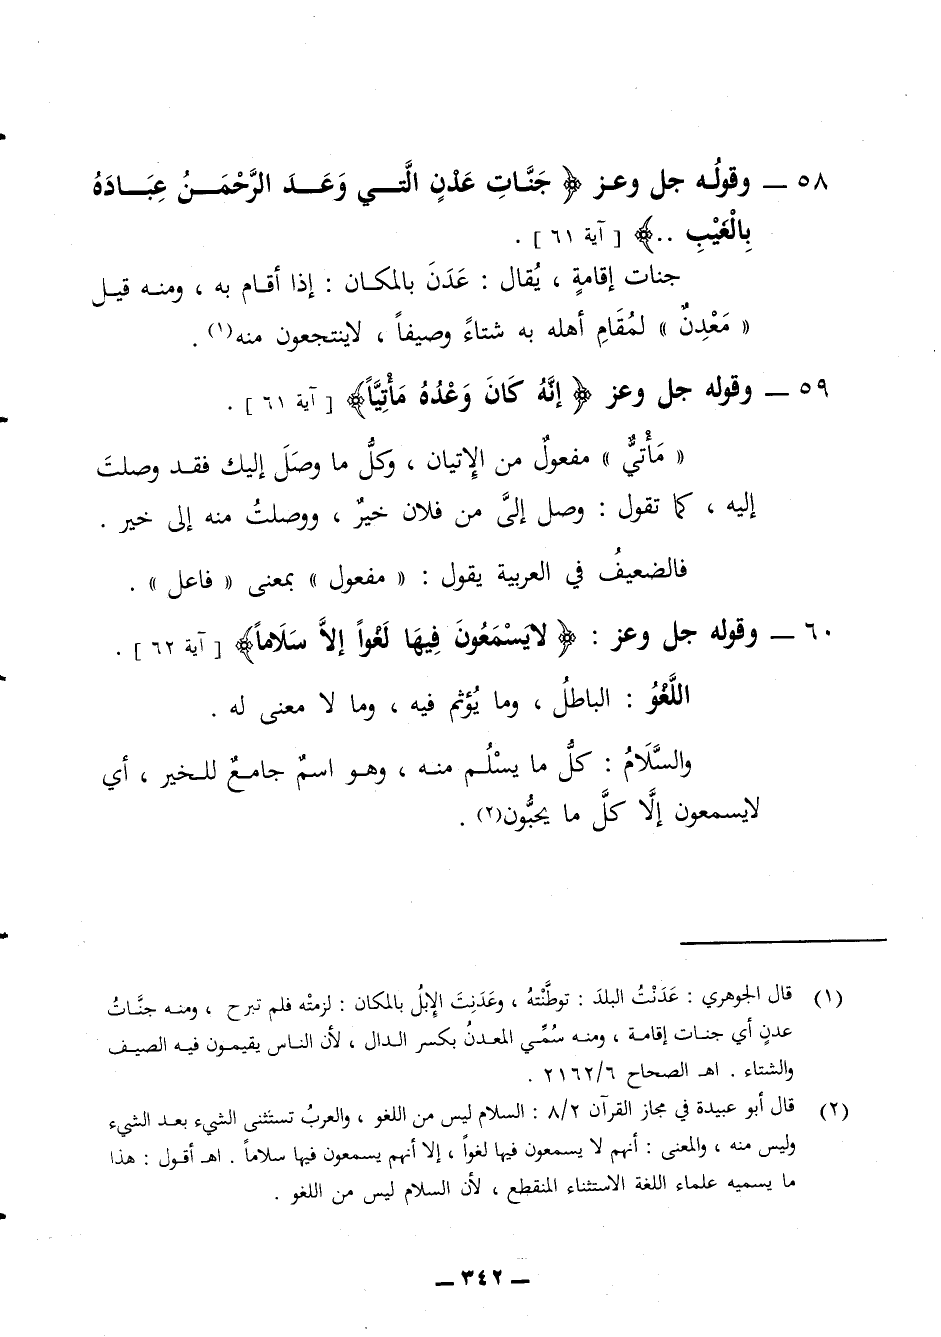 ٥٨ ــ وقولُه جل وعز ﴿ جَنَّاتِ عَدْنٍ الَّتـــي وَعَــدَ الرَّحْمَــنُ عِبَــادَهُ
بِالْغَيْبِ ..﴾ [ آية ٦١ ] .
جنات إقامةٍ ، يُقال : عَدَنَ بالمكان : إذا أقام به ، ومنه قيل
« مَعْدِنٌ » لمُقَامِ أهله به شتاءً وصيفاً ، لاينتجعون منه(١) .
٥٩ ــ وقوله جل وعز ﴿ إنَّهُ كَانَ وَعْدُهُ مَأْتِيَّاً﴾ [ آية ٦١ ] .
« مَأْتيٌّ » مفعولٌ من الإتيان ، وكلُّ ما وصَلَ إليك فقد وصلتَ
إليه ، كما تقول : وصل إليَّ من فلان خيرٌ ، ووصلتُ منه إلى خير .
فالضعيفُ في العربية يقول : « مفعول » بمعنى « فاعل » .
٦٠ ــ وقوله جل وعز : ﴿ لايَسْمَعُونَ فِيهَا لَغْواً إلاَّ سَلَاماً﴾ [ آية ٦٢ ] .
اللَّغْوُ : الباطلُ ، وما يُؤثم فيه ، وما لا معنى له .
والسَّلَامُ : كلُّ ما يسْلُم منه ، وهو اسمٌ جامعٌ للخير ، أي
لايسمعون إلَّا كلَّ ما يحبُّون(٢) .
(١) قال الجوهري : عَدَنْتُ البلدَ : توطَّنْتهُ ، وعَدَنِتَ الإبلُ بالمكان : لزمتْه فلم تبرح ، ومنه جنَّاتُ
عدنٍ أي جنات إقامة ، ومنه سُمِّي المعدنُ بكسر الدال ، لأن الناس يقيمون فيه الصيف
والشتاء . اهـ الصحاح ٢١٦٢/٦ .
(٢) قال أبو عبيدة في مجاز القرآن ٨/٢ : السلام ليس من اللغو ، والعربُ تستثنى الشيء بعد الشيء
وليس منه ، والمعنى : أنهم لا يسمعون فيها لغواً ، إلا أنهم يسمعون فيها سلاماً . اهـ أقول : هذا
ما يسميه علماء اللغة الاستثناء المنقطع ، لأن السلام ليس من اللغو .
ــ ٣٤٢ ــ